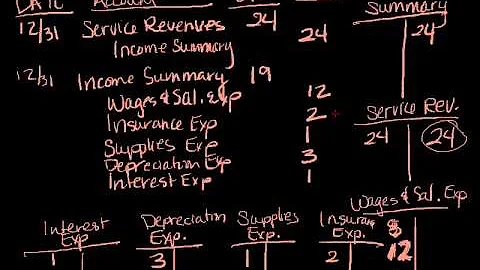 DATE Account
Summary
12/31 Service Revenues 24
Income Summary 24
24
12/31 Income Summary 19
Wages & Sal. Exp 12
Insurance Exp 2
Supplies Exp 1
Depreciation Exp 3
Interest Exp 1
Service Rev.
24 24
Wages & Sal. Exp
12
Interest Exp.
1
Depreciation Exp.
3
Supplies Exp.
1
Insurance Exp.
2